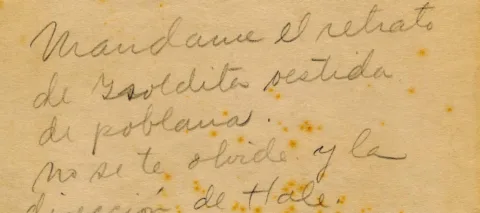 Mandame el retrato
de Isoldita vestida
de poblana.
no se te olvide y la
dirección de Hale.